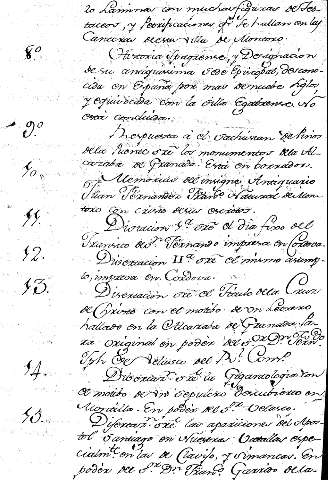 to Laminas con muchas figuras de Tes-
taceos, y Petrificaciones qe. se hallan en las
Canteras de esta Villa de Montoro.
8º Historia Ipagrense, y Designacion
de su antiquisima Sede Episcopal, descono-
cida en España por mas de nuebe siglos
y equivocada con la silla Egabrense. No
está concluida.
9º Respuesta á el Bachiller de
de la Puente sre. los monumentos de la Al-
cazaba de Granada. Está en borrador.
10. Memorias del insigne Antiquario
Juan Fernandez Franco Natural de Mon-
toro con de sus escritos.
11. Disertacion 1ª. sre. el dia fixo del
Transito de Sn. Fernando impresa en Cordova.
12. Disertacion IIª. sre. el mismo asump-
to, impresa en Cordova.
13. Disertacion sre. el Titulo de la Cruz
de Christo con el motibo de un
hallado en la Alcazaba de Granada,
original en poder del Sr. Dn.
Velasco del
14. Disertan. sre. la Gigantologia con
el motibo de un sepulcro descubierto en
Montilla. En poder del Sr. Velasco.
15. Disertan. sre. las apariciones del Apos-
tol Santiago en nuestras Batallas espe-
cialmte. en las de Clavijo, y Simancas. En
poder del Sr. Dn. Franco. Garrido de la